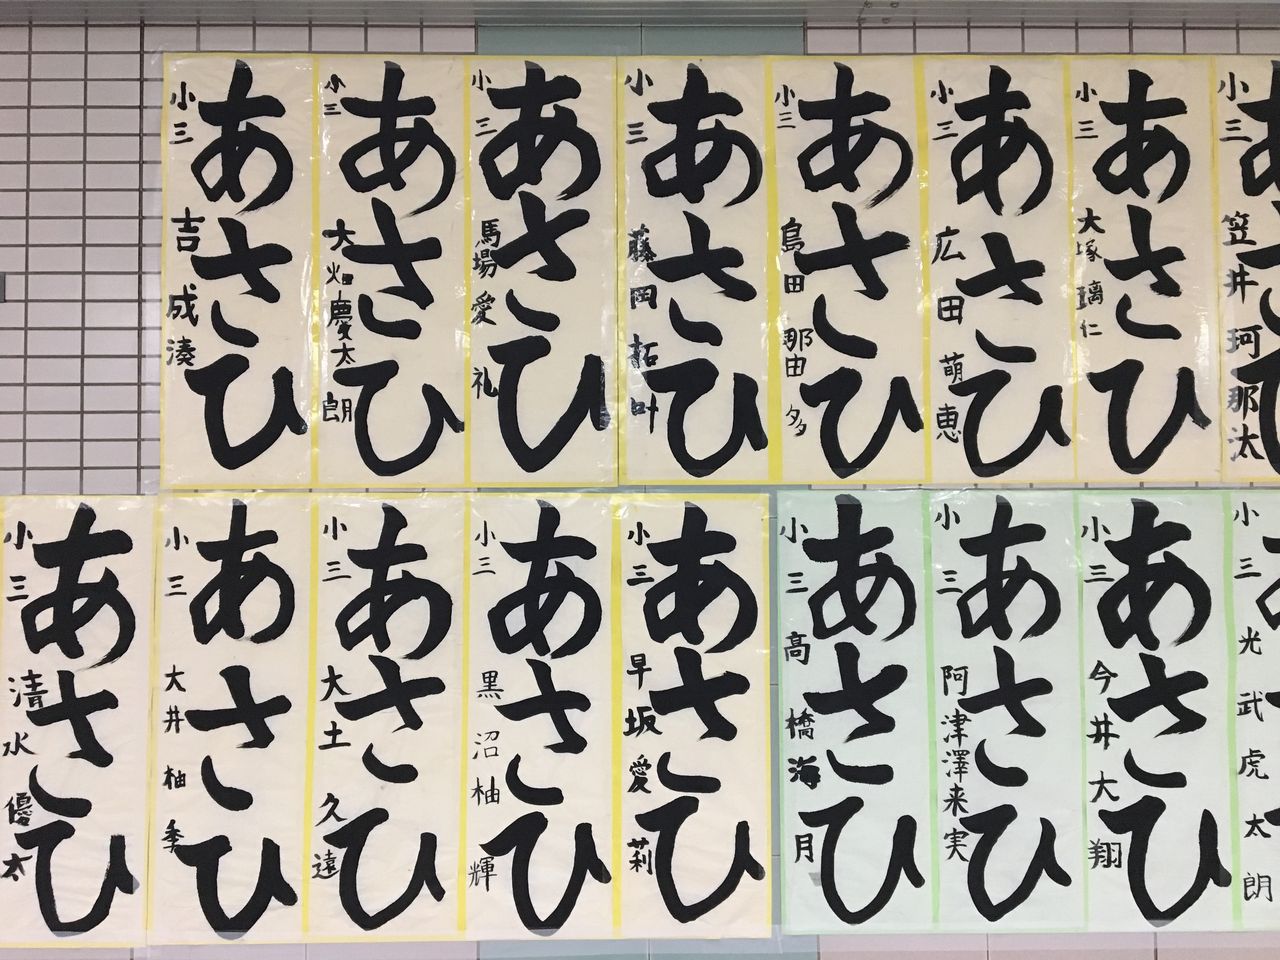 あさひ
小三 吉成湊
あさひ
小三 大畑慶太朗
あさひ
小三 馬場愛礼
あさひ
小三 藤岡拓叶
あさひ
小三 島田那由多
あさひ
小三 広田萌恵
あさひ
小三 大塚璃仁
あさひ
小三 笠井珂那汰
あさひ
小三 清水優太
あさひ
小三 大井柚季
あさひ
小三 大土久遠
あさひ
小三 黒沼柚輝
あさひ
小三 早坂愛莉
あさひ
小三 高橋海月
あさひ
小三 阿津澤来実
あさひ
小三 今井大翔
小三 光武虎太朗